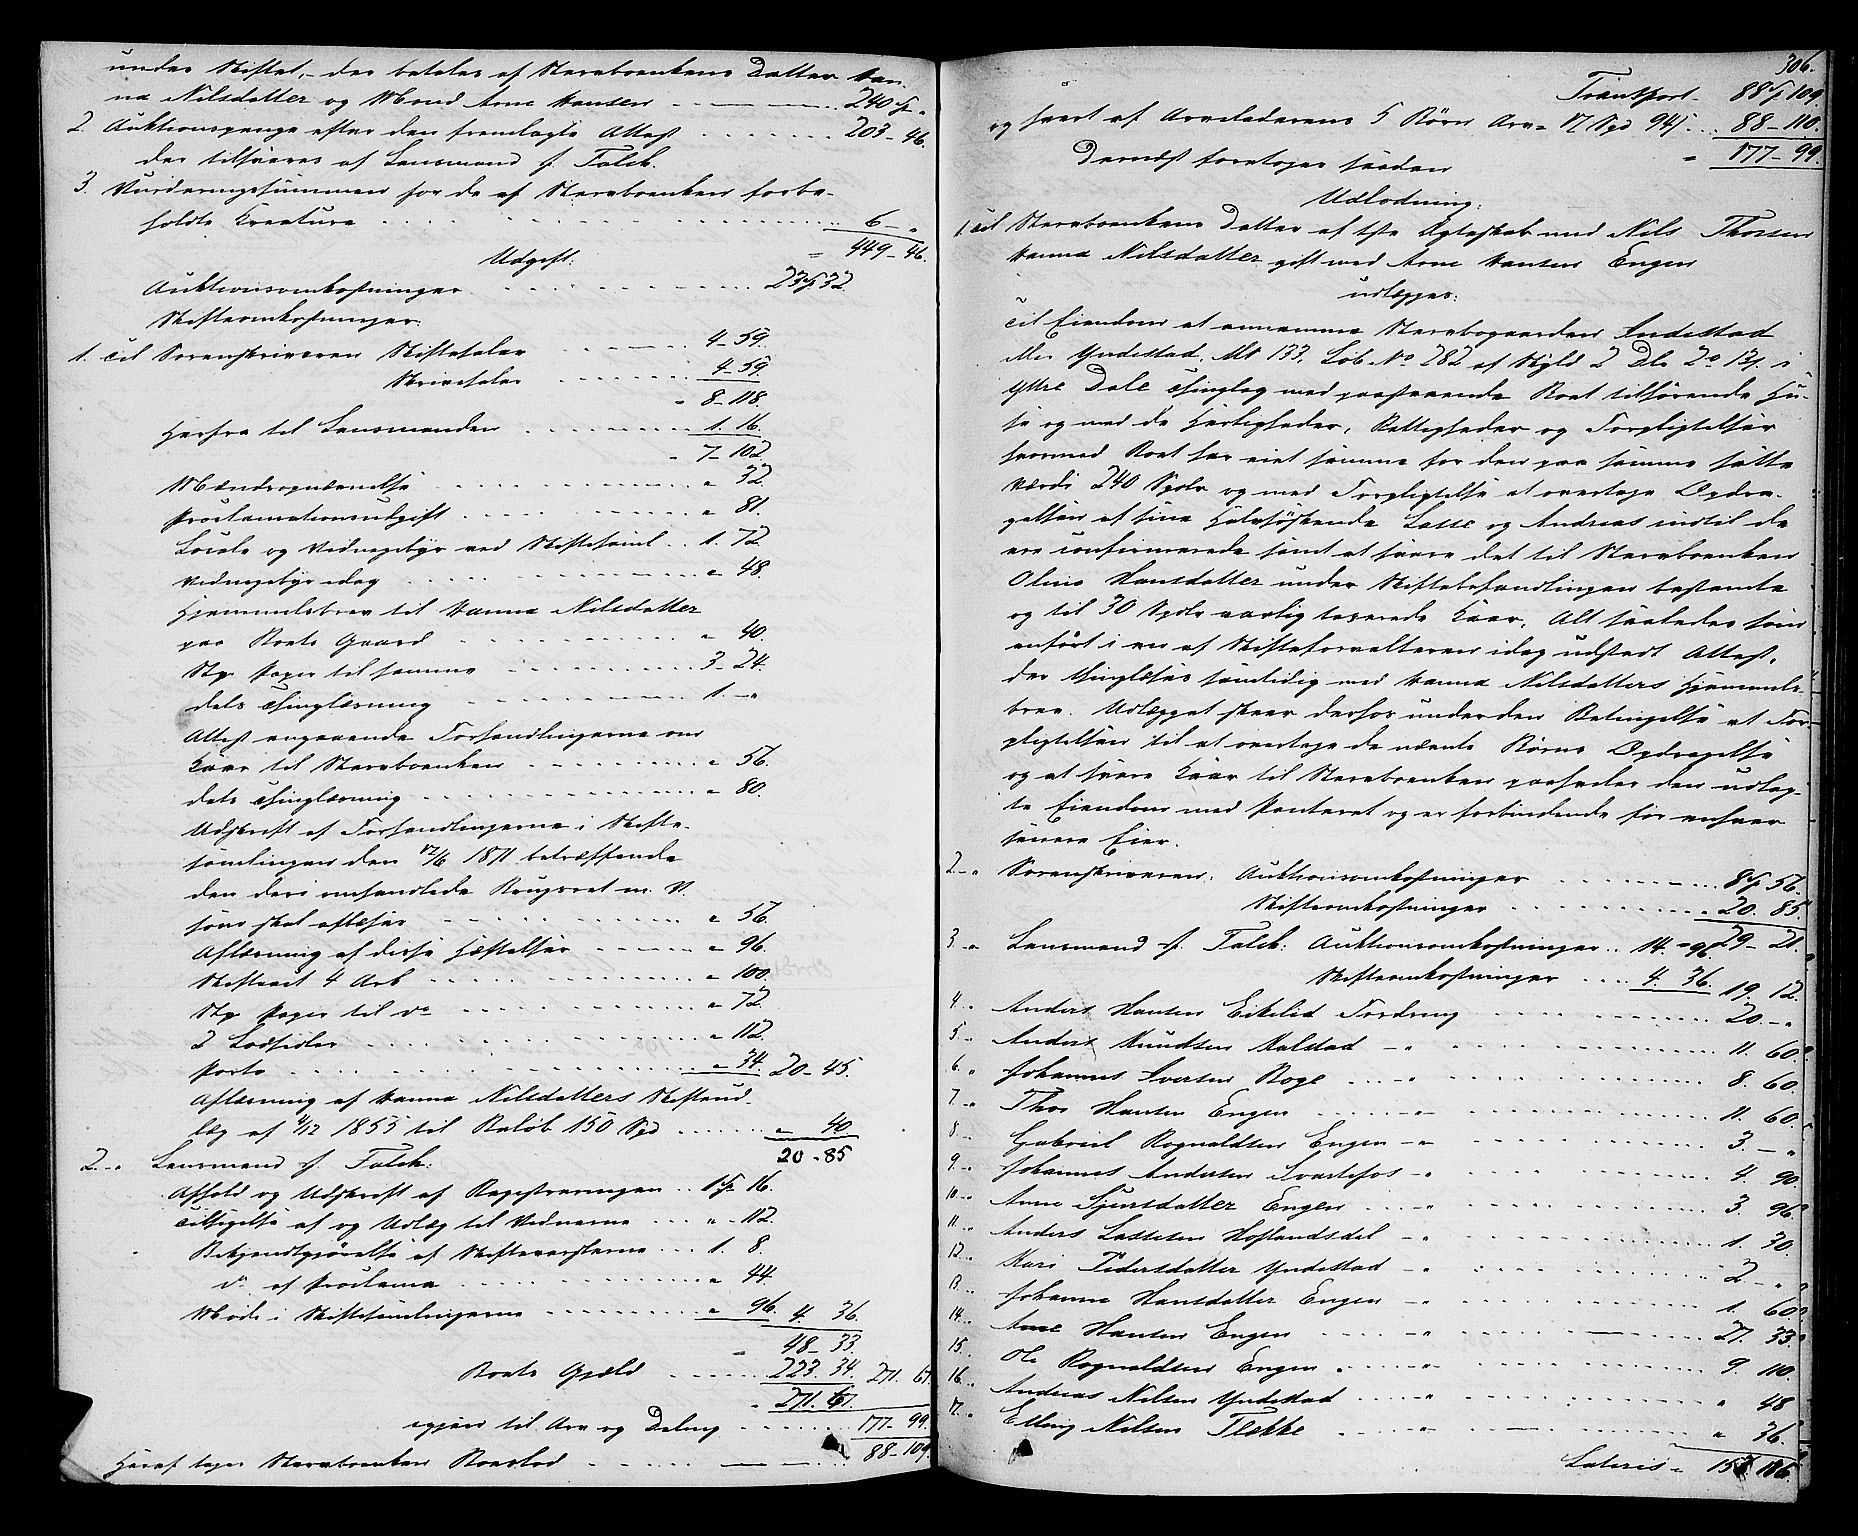 under Skiftet, der betales af Stervboenkens Datter Han-
na Nilsdatter og Mand Arne Hansen 240 Sp "
2. Auktionspenge efter den fremlagte Attest 203 - 46.
der tilsvares af Lensmand J. Falch.
3. Vurderingssummen for de af Stervboenken forbe-
holdte Kreature 6 - "
= 449 - 46.
Udgift:
Auktionsomkostninger 23 Sp 32
Skifteomkostninger:
1. Til Sorenskriveren Skiftesaler 4 - 59.
Skrivesaler 4 - 59.
" 8 - 118.
Herfra til Lensmanden 1. 16.
" 7 - 102
Mændsopnævnelse " 32
Proclamationsudgift " 81.
Locale og Vidnegebyr ved Skiftesaml. 1. 72
Vidnegebyr idag " 48.
Hjemmelsbrev til Hanna Nilsdatter
paa Boets Gaard " 40.
St. Papir til samme 3 - 24.
dets Thinglæsning 1. - "
Attest angaaende Forhandlingerne om
Kaar til Stervboenken " 56.
dets Thinglæsning " 80.
Udskrift af Forhandlingerne i Skifte-
samlingen den 12/6 1871 betræffende
den deri omhandlede Brugsret m. V.
som skal aflæses " 56.
Aflæsning af disse Hæftelser " 96.
Skifteact 4 Ark " 100.
St. Papir til do " 72
2 Lodsedler " 112
Porto " 34. 20 - 45.
Aflæsning af Hanna Nilsdatters Skifteud-
læg af 4/12 1855 til Beløb 150 Spd " 40
20 - 85
2 - " Lensmand J. Falch:
Afhold og Udskrift af Registreringen 1 Sp 16.
Tilsigelse af og Udlæg til Vidnerne " - 112
Bekjendtgjørelse af Skiftevarslerne 1. 8.
do af Proclama " 44
Møde i Skiftesamlingerne " 96. 4. 36
" 48 - 33.
Boets Gjæld 223. 34. 271. 67.
" 271. 67.
igjen til Arv og Deling 177 - 99.
Heraf tager Stervboenken Boeslod 88 - 109.
306.
Transport 88 Sp 109
og hvert af Arveladerens 5 Børn Arv = 17 Spd 94 88 - 110.
" 177 - 99.
Dernæst foretoges saadan
Udlodning:
1. Til Stervboenkens Datter af 1ste Ægteskab med Nils Thorsen
Hanna Nilsdatter gift med Arne Hansen Engen
udlægges:
Til Eiendom at annamme Stervbogaarden Indestad
eller Yndestad. M No 133. Løb No 282 af Skyld 2 Dlr 2 13 i
Ytre Dale Thinglag med paastaaende Boet tilhørende Hu-
se og med de Herligheder, Rettigheder og Forpligtelser
hvormed Boet har eiet samme for den paa samme satte
Værdi 240 Spdlr og med Forpligtelse at overtage Opdra-
gelsen af sine Halvsøskende Lasse og Andreas indtil de
ere confirmerede samt at svare det til Stervboenken
Oline Hansdatter under Skiftebehandlingen bestemte
og til 30 Spdlr aarlig taxerede Kaar, Alt saaledes som
anført i en af Skifteforvalteren idag udstedt Attest,
der thinglæses samtidig med Hanna Nilsdatters Hjemmels-
brev. Udlægget skeer derhos under den Betingelse at For-
pligtelsen til at overtage de nævnte Børns Opdragelse
og at svare Kaar til Stervboenken paaheder den udlag-
te Eiendom med Panteret og er forbindende for enhver
senere Eier.
2 - " Sorenskriveren: Auktionsomkostninger 8 Sp 56.
Skifteomkostninger " 20. 85.
29 - 21.
3 - " Lensmand J. Falch: Auktionsomkostninger 14 - 96
Skifteomkostninger 4. 36. 19. 12.
4. - " Anders Hansen Eikelid Fordring 20. - "
5. - " Anders Knudsen Kalstad - " 11. 60.
6. - " Johannes Iversen Boge - " 8. 60.
7. - " Thor Hansen Engen - " 11. 60.
8. - " Gabriel Rognaldsen Engen - " 3. - "
9. - " Johannes Andersen Svartefos - " 4. 90.
10. - " Anne Sjursdatter Engen - " 3. 96
11. - " Anders Lassesen Hoflandsdal - " 1. 30.
12. - " Kari Pedersdatter Yndestad - " 2 - "
13. - " Johanne Hansdatter Engen - " 1. 60
14. - " Arne Hansen Engen - " 27. 33.
15. - " Ole Rognaldsen Engen - " 9. 110.
16. - " Andreas Nilsen Yndestad - " " 48
17. - " Elling Nilsen Flekke - " " 36.
Lateris = 153 106.